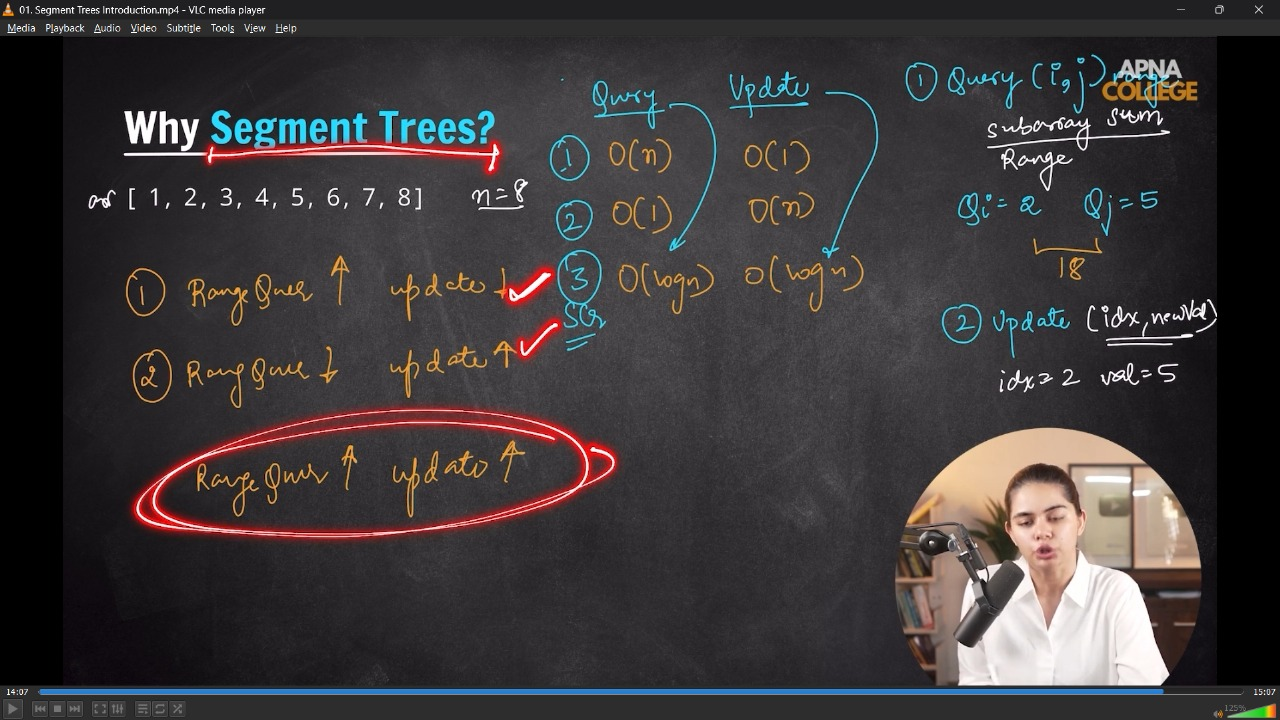 01. Segment Trees Introduction.mp4 - VLC media player
Media Playback Audio Video Subtitle Tools View Help
Why Segment Trees?
arr [ 1, 2, 3, 4, 5, 6, 7, 8 ] n=8
① Range Quer ↑ update ↓
② Rang Quer ↓ update ↑
Range Quer ↑ update ↑
Query Update
① O(n) O(1)
② O(1) O(n)
③ O(logn) O(logn)
① Query (i, j) range
APNA
COLLEGE
subarray sum
Range
Qi = 2 Qj = 5
18
② Update (idx, newVal)
idx = 2 val = 5
14:07 15:07
125%